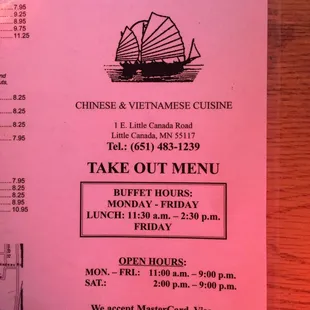 7.95
9.25
8.95
9.75
11.25
8.25
8.25
8.25
7.95
7.95
8.25
8.25
8.95
10.95
CHINESE & VIETNAMESE CUISINE
1 E. Little Canada Road
Little Canada, MN 55117
Tel.: (651) 483-1239
TAKE OUT MENU
BUFFET HOURS:
MONDAY - FRIDAY
LUNCH: 11:30 a.m. – 2:30 p.m.
FRIDAY
OPEN HOURS:
MON. – FRI.: 11:00 a.m. – 9:00 p.m.
SAT.: 2:00 p.m. – 9:00 p.m.
We accept MasterCard, Visa